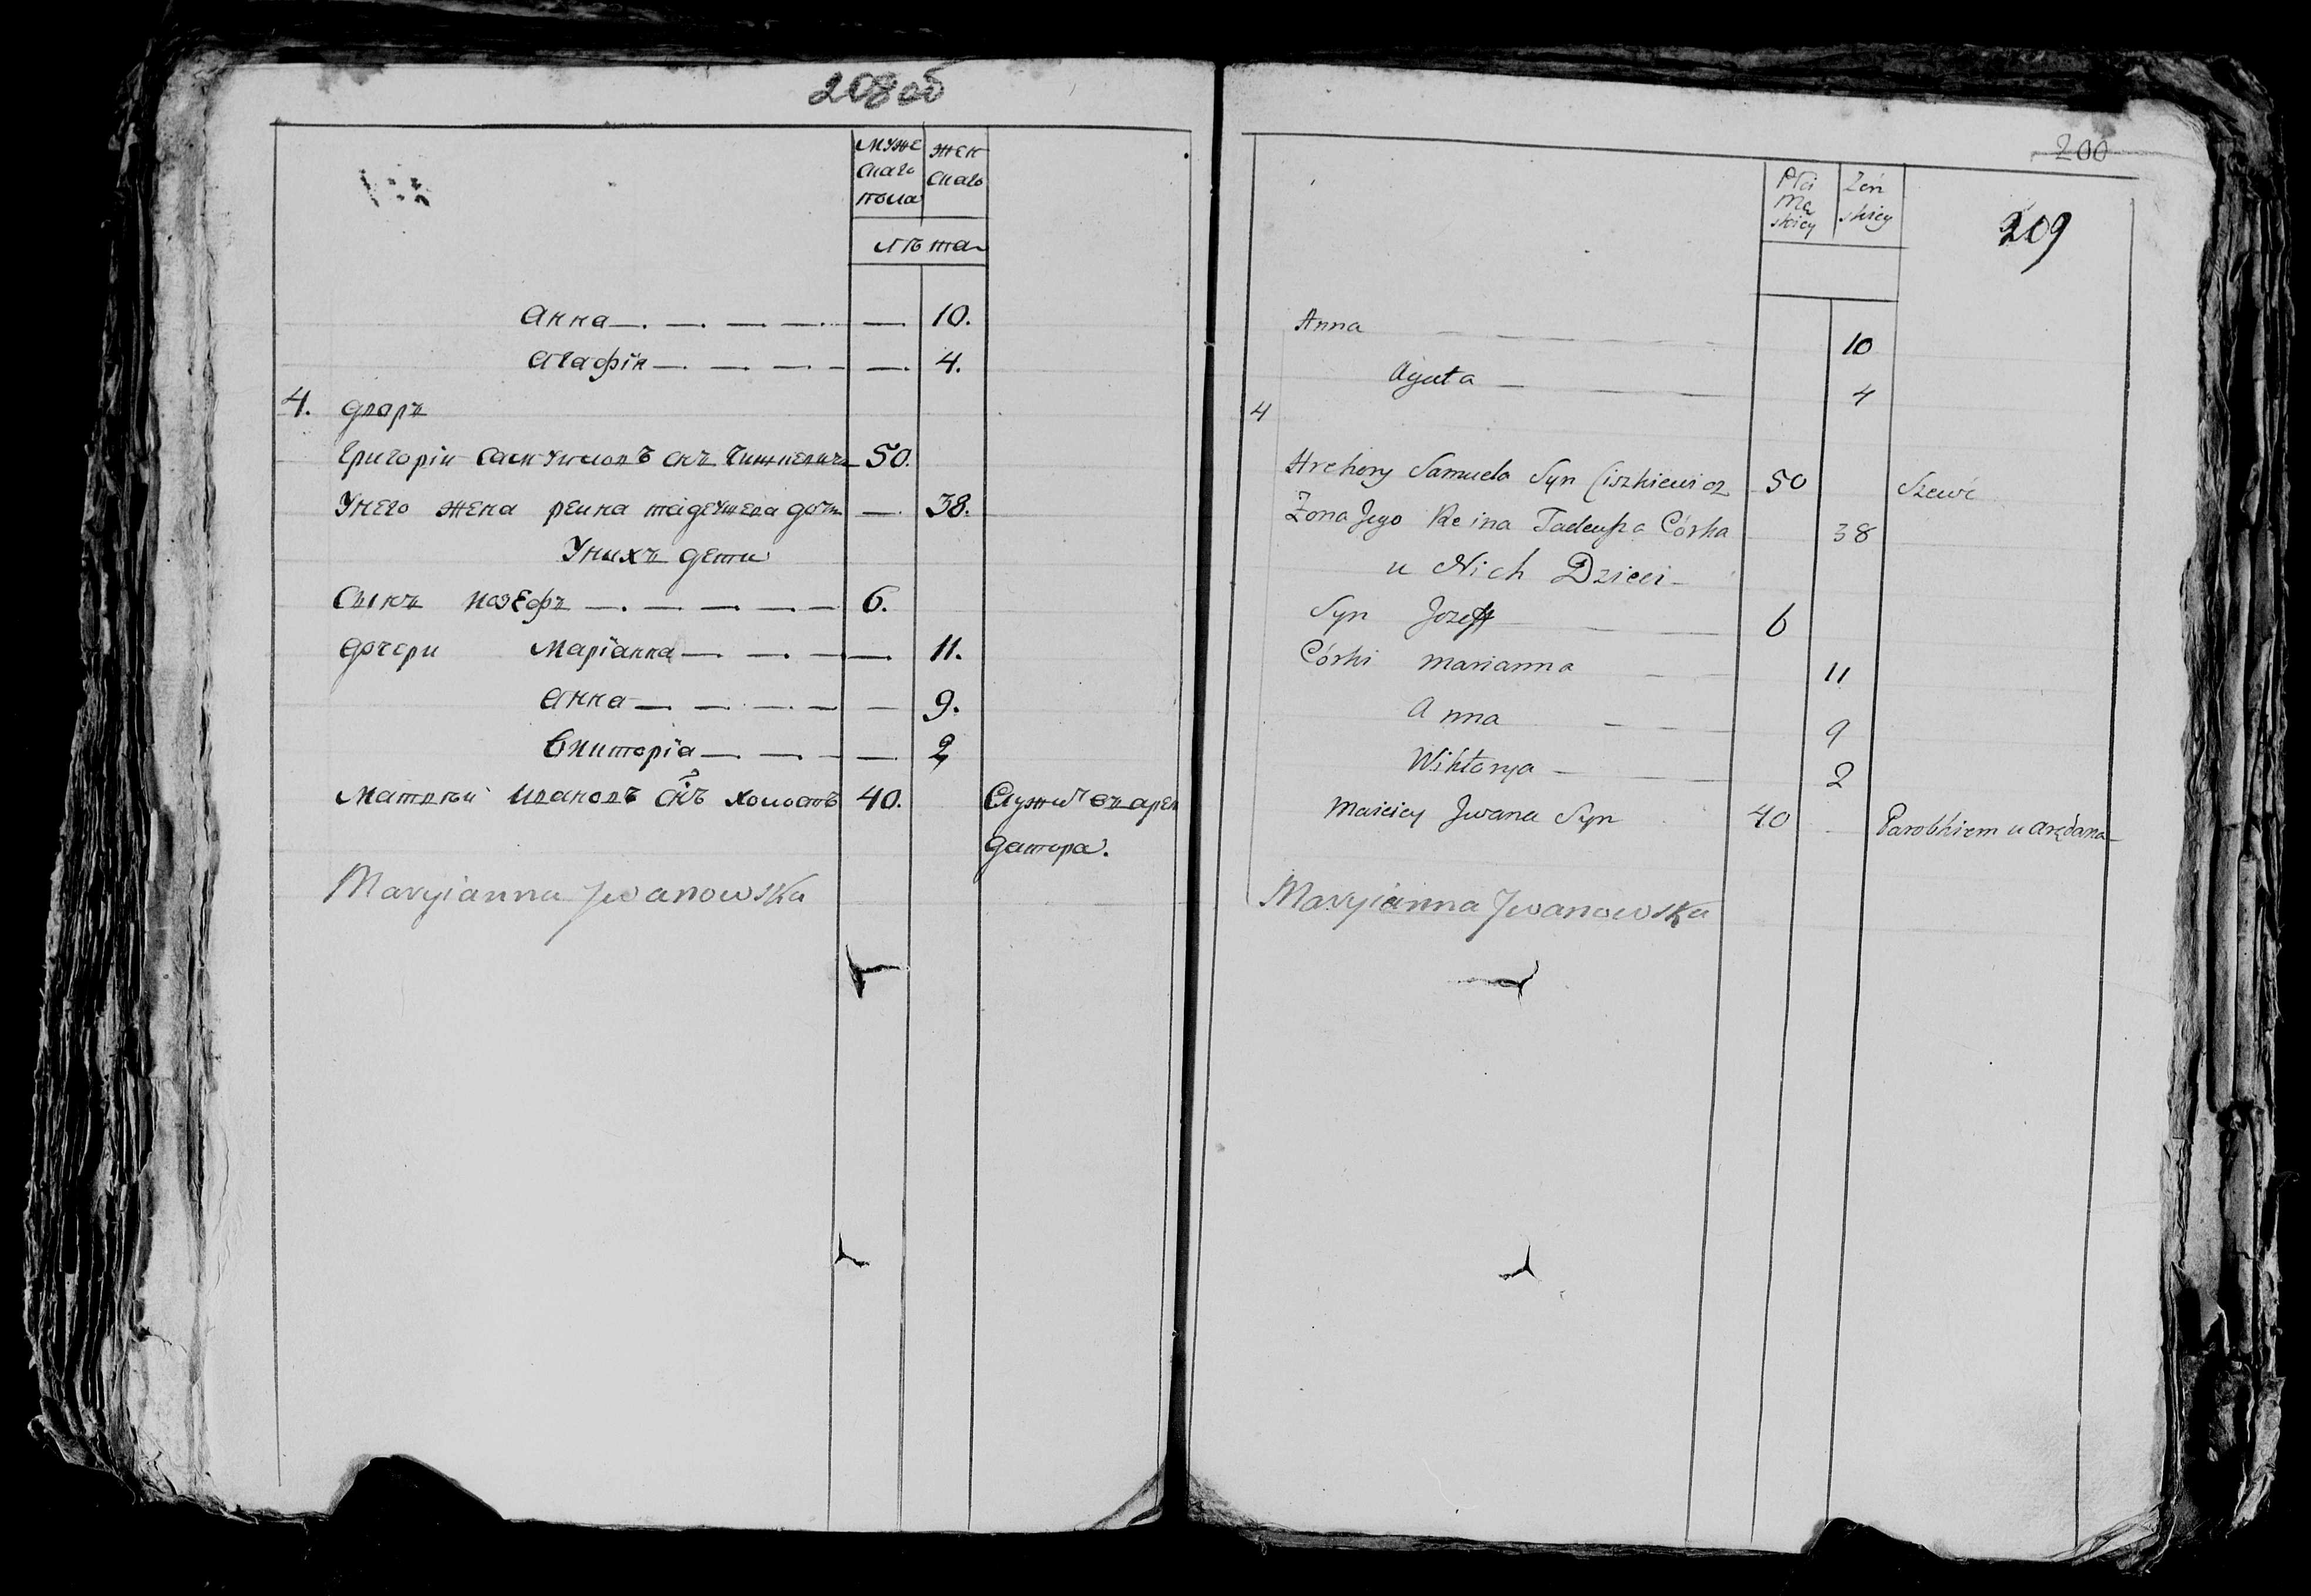 208об
муже
скаго
пола
жен
скаго
лѣта
Анна 10.
Агафія 4.
4. дворъ
Григорій Самуиловъ снъ Чижкевичъ 50.
У него жена Реина тадеушева дочь 38.
У нихъ дети
Сынъ Иозефъ 6.
дочери Маріанна 11.
Анна 9.
Викторія 2
Матвѣй Ивановъ снъ холостъ 40. Служит въ арен
датора.
Maryianna Jwanowska
200
209
Płci
Mę
skiey
Żeń
skiey
Anna 10
Agata 4
4
Hrehory Samuela Syn Ciszkiewicz 50 Szewc
Żona Jego Reina Tadeusza Córka 38
u Nich Dzieci
Syn Jozeff 6
Córki Marianna 11
Anna 9
Wiktorya 2
Maciey Jwana Syn 40 Parobkiem u
Maryianna Jwanowska